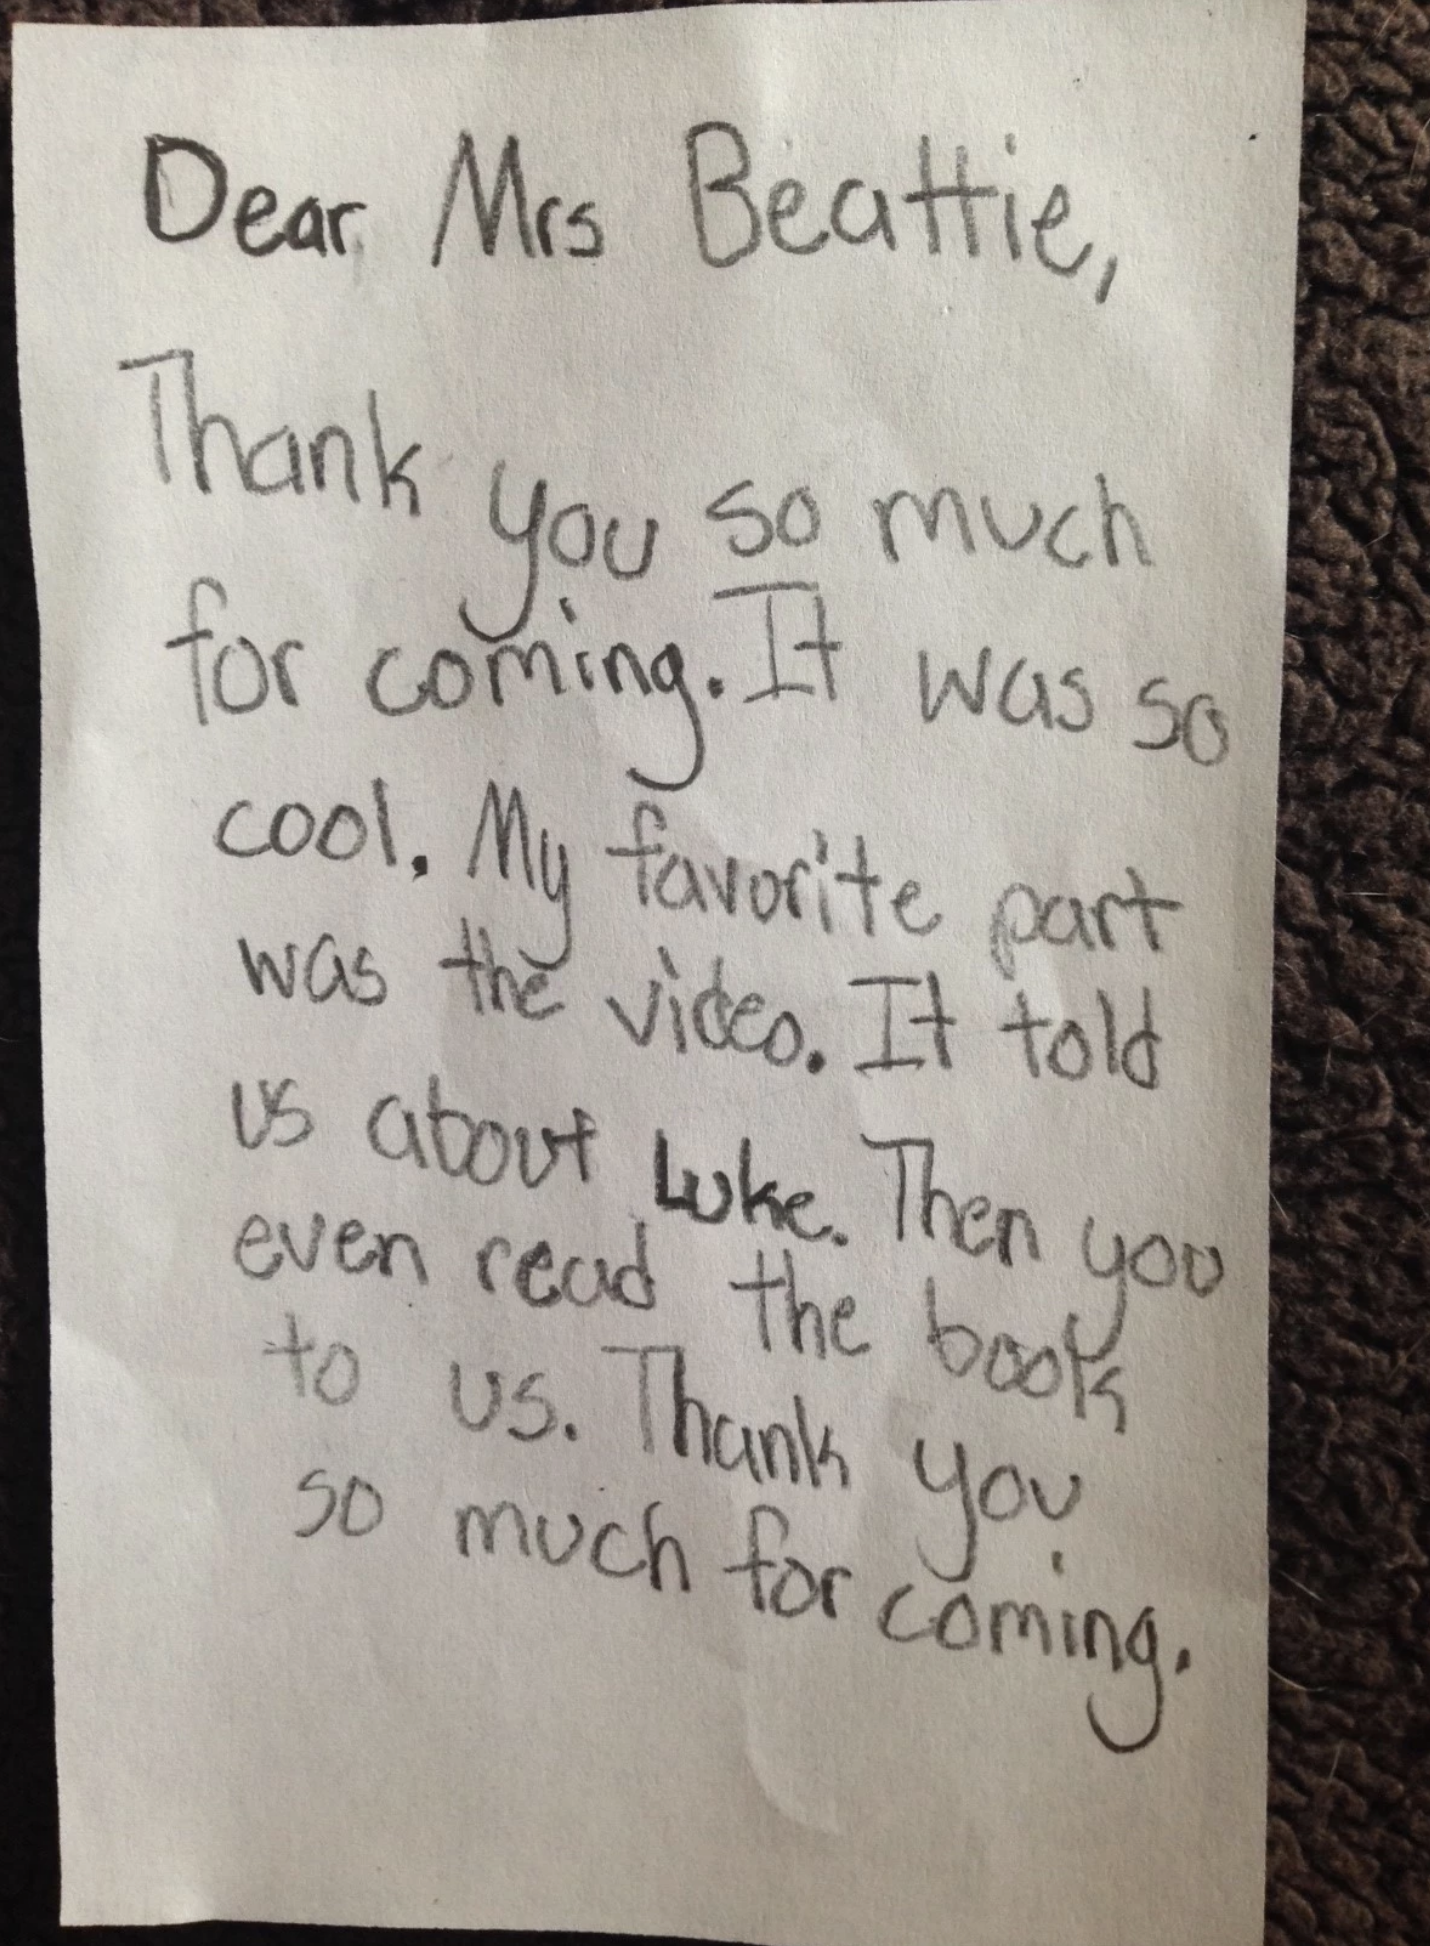 Dear Mrs Beattie,
Thank you so much
for coming. It was so
cool. My favorite part
was the video. It told
us about Luke. Then you
even read the book
to us. Thank you
so much for coming.